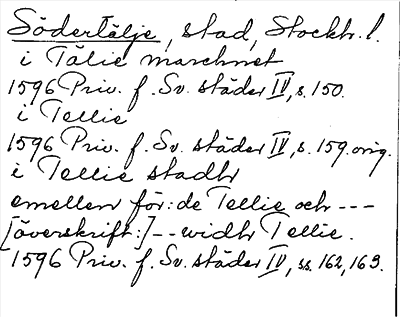 Södertälje, stad, Stockh. l.
i Tälie marchnet
1596 Priv. f. Sv. städer IV, s. 150.
i Tellie
1596 Priv. f. Sv. städer IV, s. 159. orig.
i Tellie stadh
emellen för:de Tellie och ---
[överskrift:] -- widh Tellie.
1596 Priv. f. Sv. städer IV, ss. 162, 163.